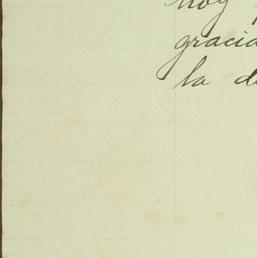 hoy
gracia
la d